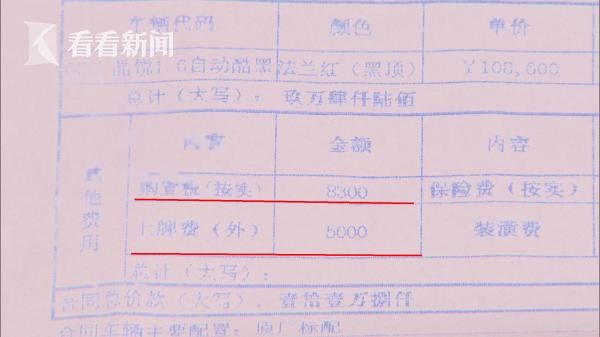 看看新闻
车辆代码 颜色 单价
晶锐1.6自动酷黑 法兰红（黑顶） ￥108,600
总计（大写）： 玖万肆仟陆佰
其他费用
内容 金额 内容
购置税（按实） 8300 保险费（按实）
上牌费（外） 5000 装潢费
总计（大写）：
合同总价款（大写）、壹拾壹万捌仟
合同车辆主要配置：原厂标配